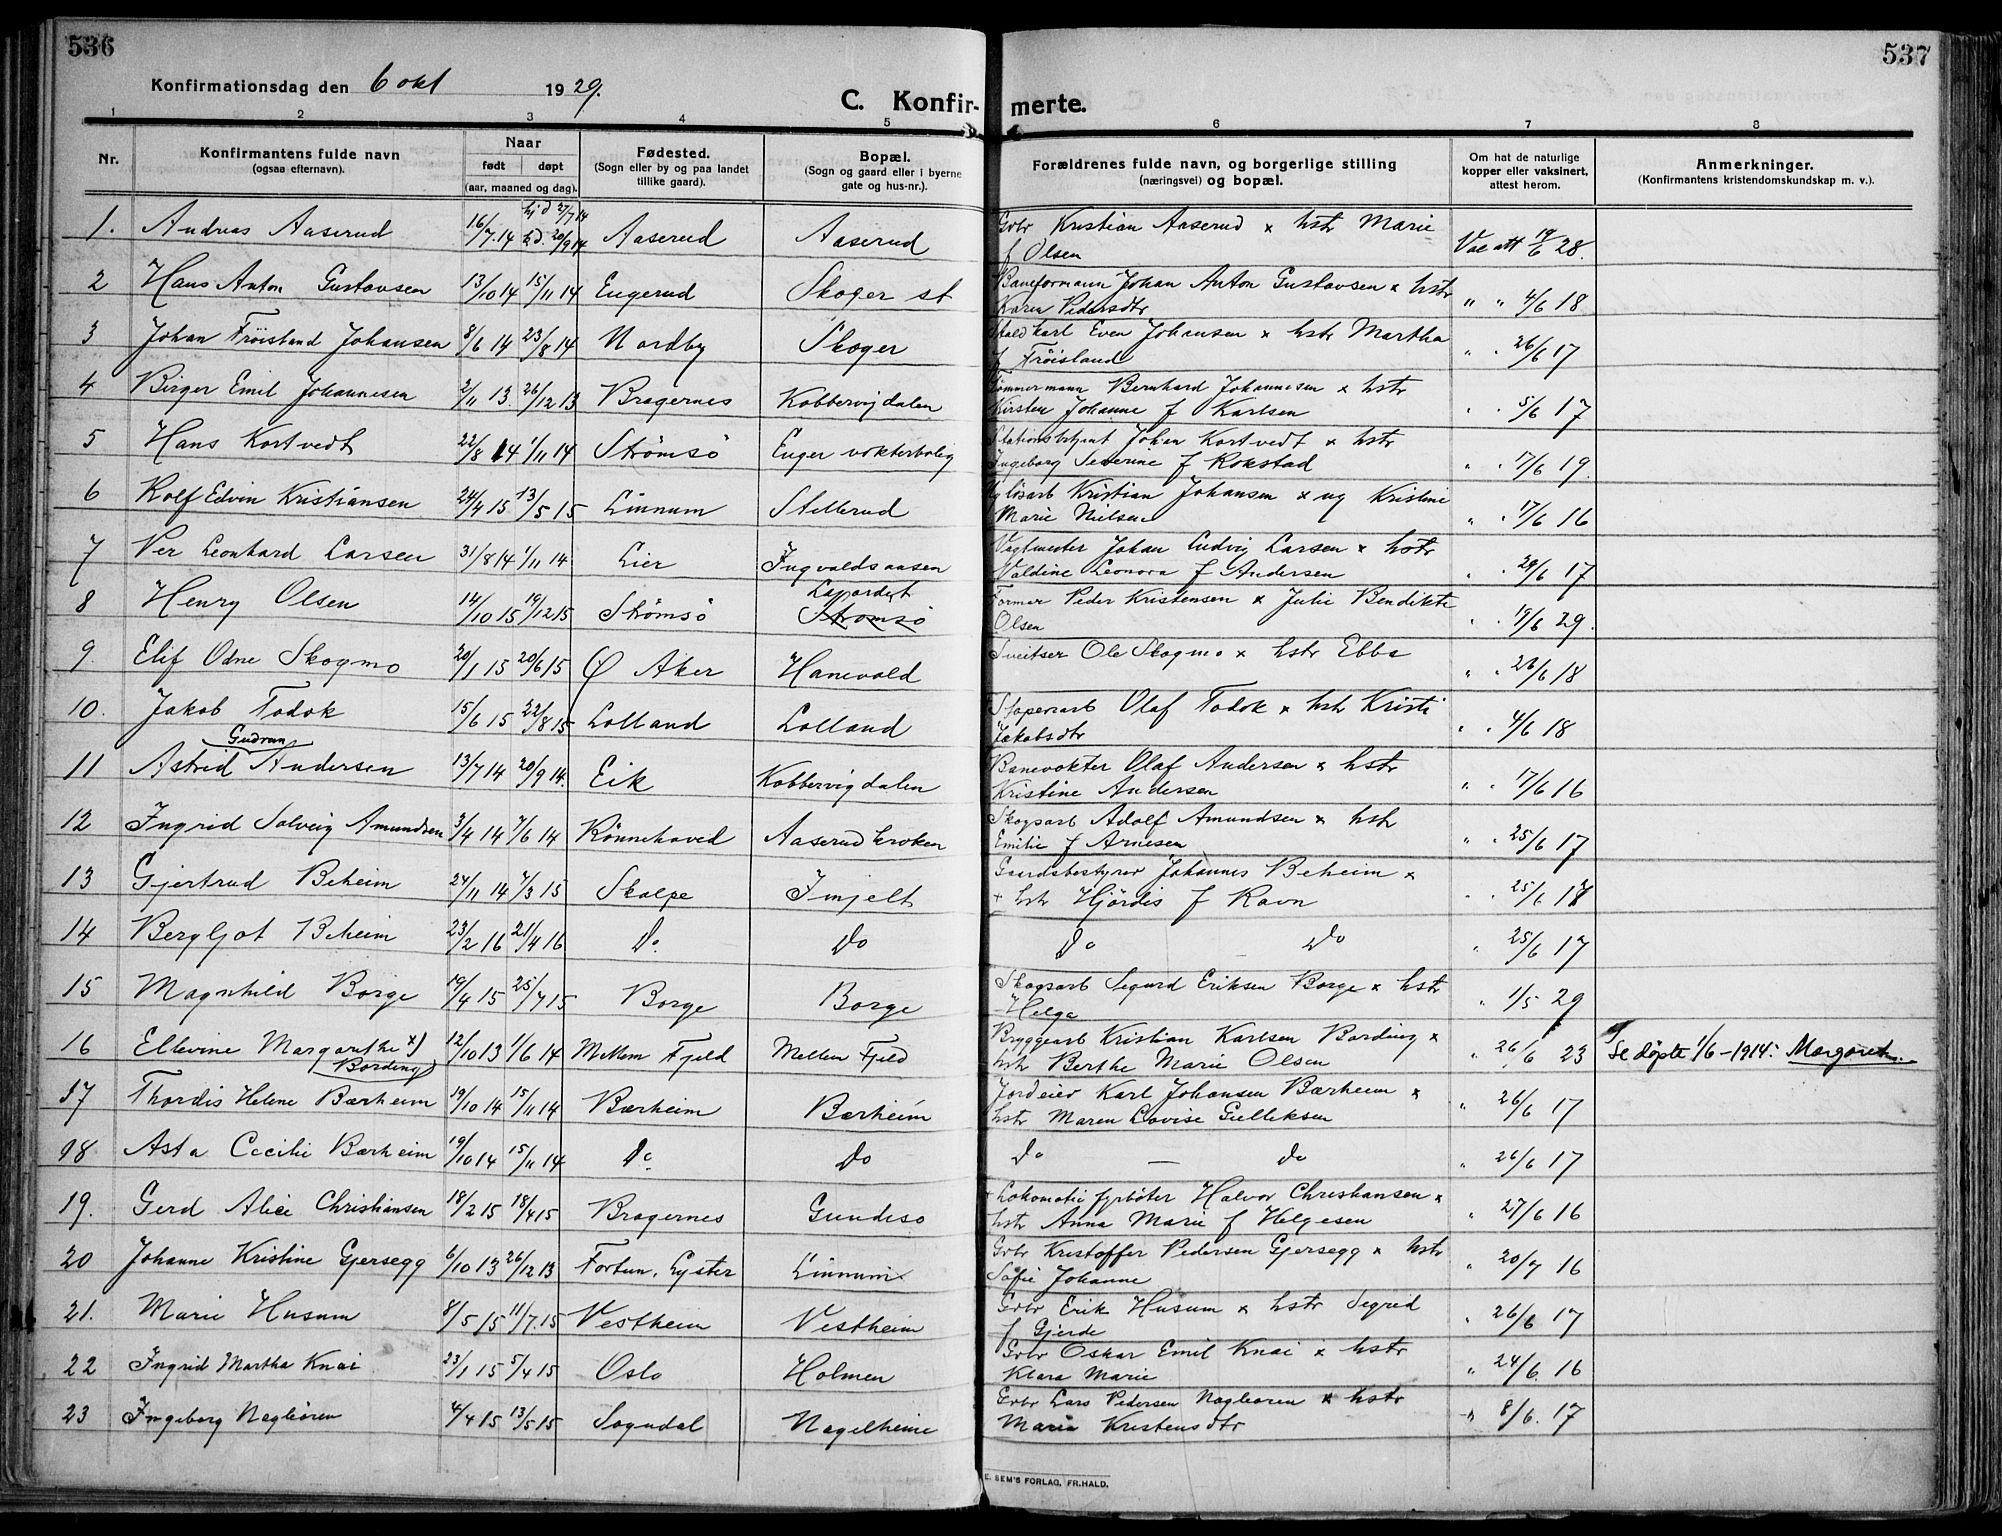 536
537
Konfirmationsdag den 6 okt 1929.
C. Konfirmerte.
1 2 3 4 5 6 7 8
Nr. Konfirmantens fulde navn (ogsaa efternavn). Naar født døpt (aar, maaned og dag). Fødested. (Sogn eller by og paa landet tillike gaard). Bopæl. (Sogn og gaard eller i byerne gate og hus-nr.). Forældrenes fulde navn, og borgerlige stilling (næringsvei) og bopæl. Om hat de naturlige kopper eller vaksinert, attest herom. Anmerkninger. (Konfirmantens kristendomskundskap m. v.).
1. Andreas Aaserud 16/7 14 hjd 27/7 14 kd. 20/9 14 Aaserud Aaserud Grbr Kristian Aaserud x hstr Marie f Olsen Vac att 19/6 28.
2 Hans Anton Gustavsen 13/10 14 15/11 14 Eugerud Skoger st Baneformann Johan Anton Gustavsen x hstr Karen Pedersdtr " " 4/6 18
3 Johan Frøisland Johansen 8/6 14 23/8 14 Nordby Skoger Staldkarl Even Johansen x hstr Martha f Frøisland " " 26/6 17
4 Birger Emil Johannesen 2/11 13. 26/12 13 Bragernes Kobbervigdalen Tømmermann Bernhard Johannesen x hstr Kirsten Johanne f Karlsen " " 5/6 17
5 Hans Kortvedt 22/8 14 1/11 14 Strømsö Euger vokterbolig Stationsbetjent Johan Kortvedt x hstr Ingeborg Severine f Rokstad " " 17/6 19.
6 Rolf Edvin Kristiansen 24/4 15 13/5 15 Linnum Stellerud Kristian Johansen x ug Kristine Marie Nielsen " " 17/6 16
7 Per Leonhard Larsen 31/8 14 1/11 14 Lier Ingvaldsaasen Vagtmester Johan Ludvig Larsen x hstr Valdine Leonora f Andersen " " 29/6 17
8 Henry Olsen 14/10 15 19/12 15 Strømsö Strømsö Former Peder Kristensen x Julie Bendikte Olsen " " 19/6 29.
9. Elif Odne Skogmo 20/1 15 20/6 15 Ø Aker Hanevold Sveitser Ole Skogmo x hstr Ebba " " 26/6 18
10. Jakob Todok 15/6 15 22/8 15 Lolland Lolland Olaf Todok x hstr Kristi Jakobsdtr " " 4/6 18
11 Astrid Gudrun Andersen 13/7 14 20/9 14. Eik Kobbervigdalen Banevokter Olaf Andersen x hstr Kristine Andersen " " 17/6 16
12 Ingrid Solveig Amundsen 3/4 14 7/6 14 Rönnehoved Aaserudkroken Skogsarb Adolf Amundsen x hstr Emilie f Arnesen " " 25/6 17
13 Gjertrud Beheim 24/11 14 7/3 15 Skalpe Imjelt Gaardsbestyrer Johannes Beheim x + hstr Hjördis f Ravn " " 25/6 17
14 Bergljot Beheim 23/2 16 21/4 16 Do Do Do Do " 25/6 17
15 Magnhild Borge 19/4 15 25/7 15 Borge Borge Skogsarb Sigurd Eriksen Borge x hstr Helga " 1/5 29
16 Ellevine Margarethe x) Bording 12/10 13 1/6 14 Mellem Fjeld Mellem Fjeld Bryggearb Kristian Karlsen Bording x hstr Berthe Marie Olsen " 26/6 23 Se døpte 1/6-1914: Margaret.
17 Thordis Helene Bærheim 19/10 14 15/11 14 Bærheim Bærheim Jordeier Karl Johansen Bærheim x hstr Maren Lovise Gulliksen " 26/6 17
18 Asta Cecilie Bærheim 19/10 14 15/11 14 Do Do Do — do " 26/6 17
19. Gerd Alice Christiansen 18/2 15 18/4 15 Bragernes Gundesö + Lokomotivfyrbøter Halvor Christiansen x hstr Anna Marie f Helgesen " 27/6 16
20 Johanne Kristine Gjersegg 6/10 13 26/12 13 Fortun, Lyster Linnum Grbr Kristoffer Pedersen Gjersegg x hstr Sofie Johanne " 20/7 16
21. Marie Husum 8/5 15 11/7.15 Vestheim Vestheim Grbr Erik Husum x hstr Sigrid f Gjerde " 26/6 17
22 Ingrid Martha Knai 23/1 15 5/4 15 Oslo Holmen Grbr Oskar Emil Knai x hstr Klara Marie " 24/6. 16
23 Ingeborg Nagløren 4/4 15 13/5 15 Sogndal Nagelheime Grbr Lars Pedersen Nagløren x hstr Maria Kristensdtr " 8/6. 17
E. SEM'S FORLAG, FR.HALD.